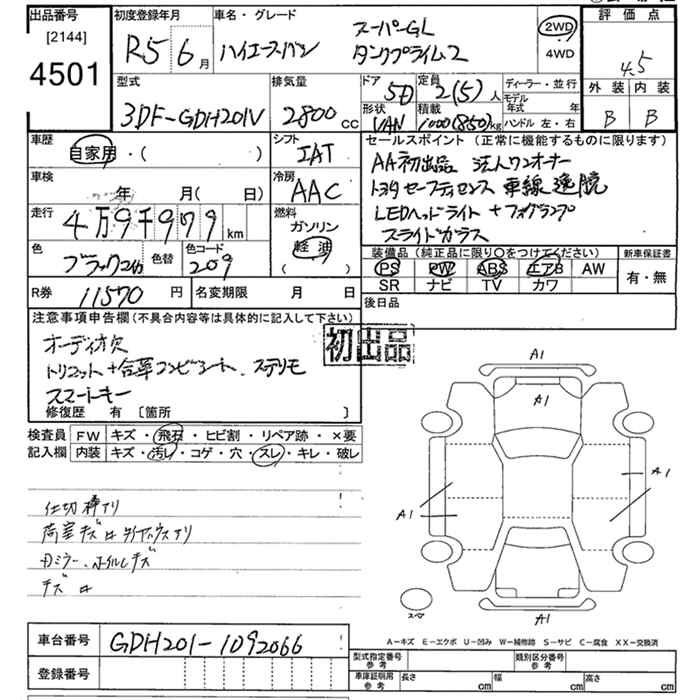 出品番号
[2144]
4501
初度登録年月
R5 6月
車名・グレード
ハイエースバン
スーパーGL
ダークプライム2
2WD
4WD
評価点
4.5
外装 内装
B B
型式
3DF-GDH201V
排気量
2800cc
ドア 5D
形状 VAN
定員 2(5)人
積載 1000(850)kg
ディーラー・並行
モデル年式 年
ハンドル 左・右
車歴
自家用・( )
シフト
IAT
冷房
AAC
車検
年 月( 日)
走行
4万9千979km
燃料
ガソリン
軽油
( )
色
ブラックマイカ
色替
色コード
209
R券 11570円
名変期限 月 日
セールスポイント(正常に機能するものに限ります)
AA初出品 法人ワンオーナー
トヨタセーフティセンス 車線逸脱
LEDヘッドライト+フォグランプ
スライドガラス
装備品(純正品に限り○をつけてください) 新車保証書
PS PW ABS エアB AW
SR ナビ TV カワ
有・無
後日品
注意事項申告欄(不具合内容等は具体的に記入して下さい)
オーディオ欠
トリコット+合革コンビシート、ステリモ
スマートキー
修復歴 有〔箇所 〕
初出品
検査員 FW キズ・飛石・ヒビ割・リペア跡・×要
記入欄 内装 キズ・汚レ・コゲ・穴・スレ・キレ・破レ
仕切棒アリ
荷室キズ
ホイルキズ
キズ
A1
A1
A1
A1
A1
スペア
A-キズ E-エクボ U-凹み W-補修跡 S-サビ C-腐食 XX-交換済
車台番号 GDH201-1092066
登録番号
型式指定番号 参考
類別区分番号 参考
車庫証明用 参考
長さ cm 幅 cm 高さ cm